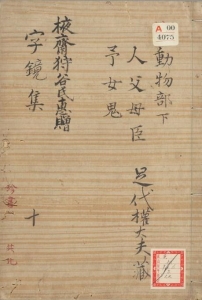 A 00
4075
動物部下
人父母臣
予女鬼
足代權大夫藏
掖齋狩谷氏惠贈
字鏡集 十